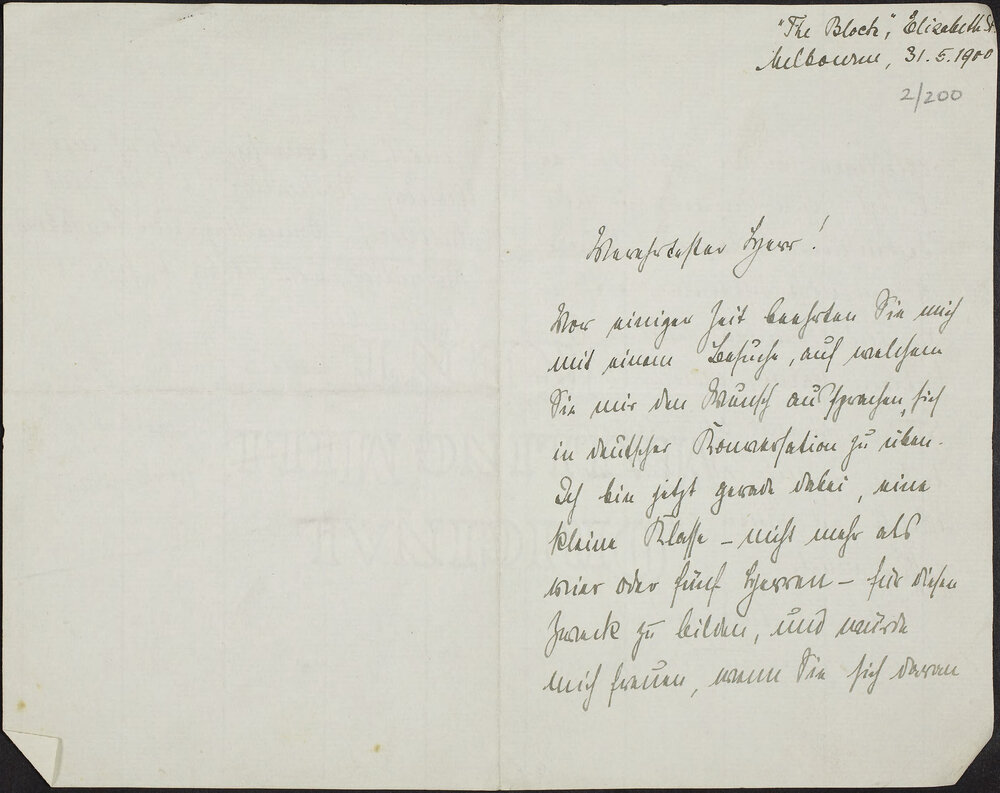 "The Block", Elizabeth St.
Melbourne, 31.5.1900
2/200
Verehrtester Herr!
Vor einiger Zeit beehrten Sie mich
mit einem Besuche, auf welchem
Sie mir den Wunsch aussprachen, sich
in deutscher Konversation zu üben.
Ich bin jetzt gerade dabei, eine
kleine Klasse – nicht mehr als
vier oder fünf Herren – für diesen
Zweck zu bilden, und würde
mich freuen, wenn Sie sich daran